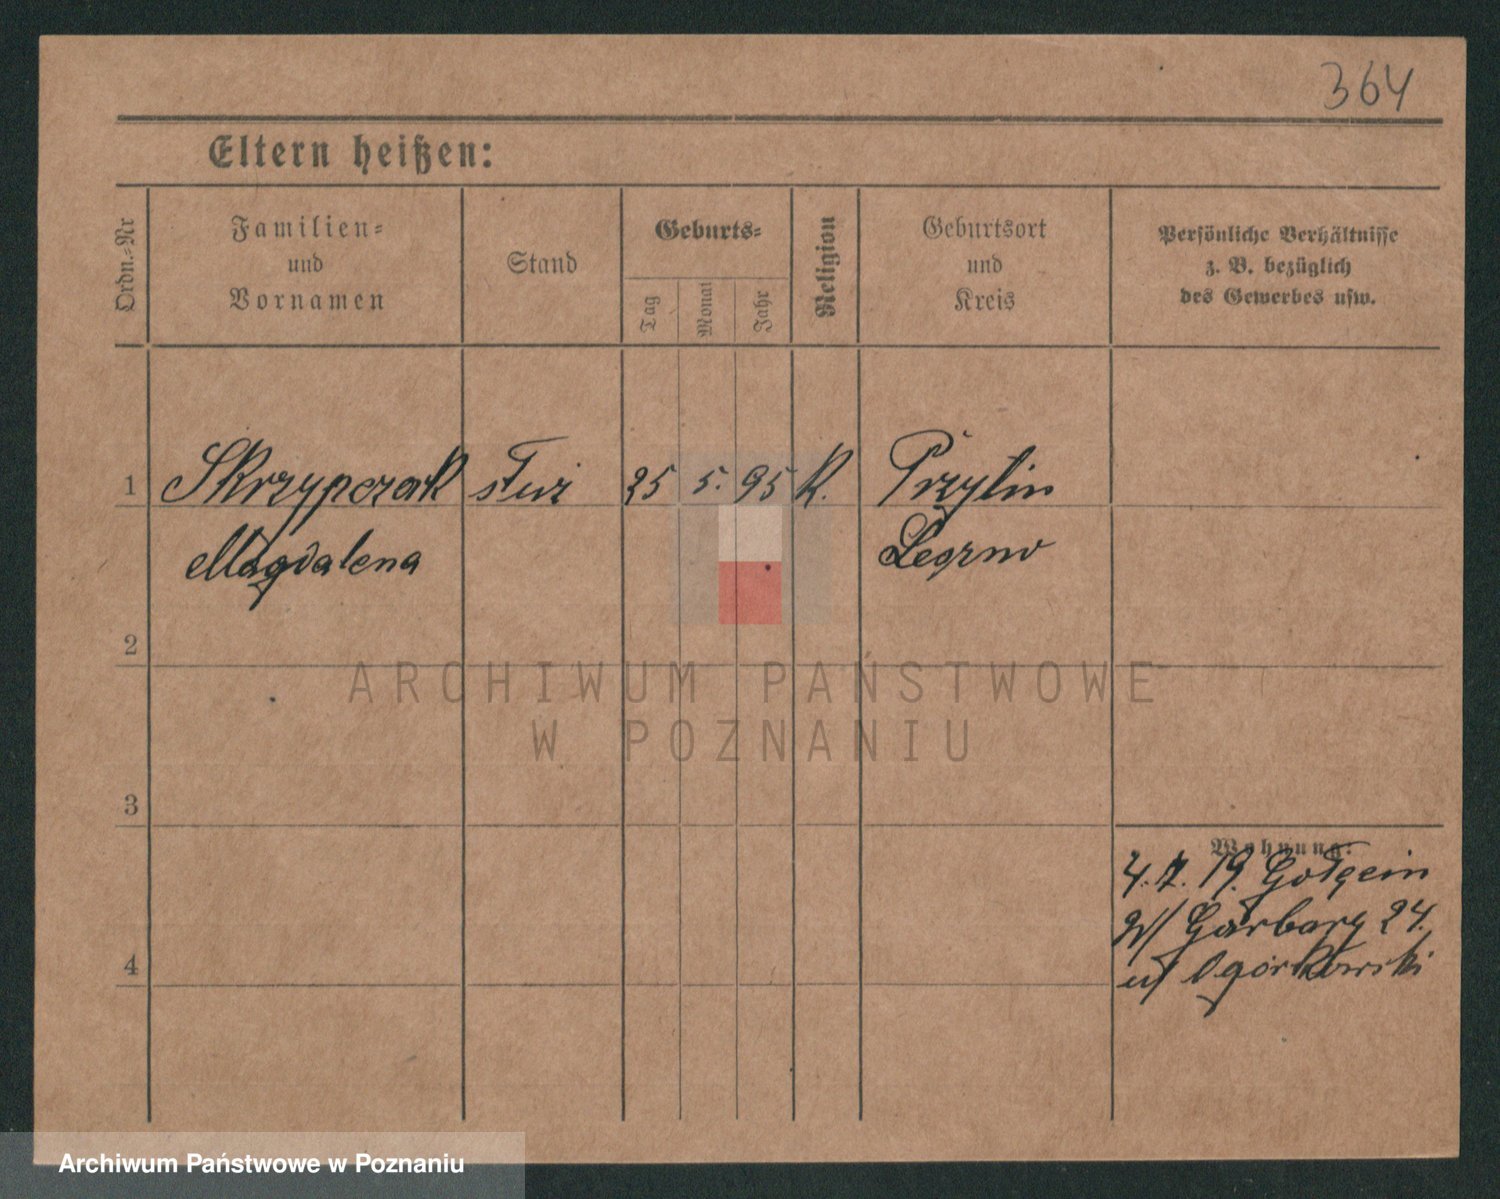 364
Eltern heißen:
Ordn.-Nr
Familien-
und
Vornamen
Stand
Geburts-
Tag
Monat
Jahr
Religion
Geburtsort
und
Kreis
Persönliche Verhältnisse
z. B. bezüglich
des Gewerbes usw.
1 Skrzypczak 25 5. 95 K. Przylin
Magdalena
2
3
4
Wohnung:
4. 7. 19.
w/ Garbary 24.
u/ Ogórkowski
ARCHIWUM PAŃSTWOWE
W POZNANIU
Archiwum Państwowe w Poznaniu